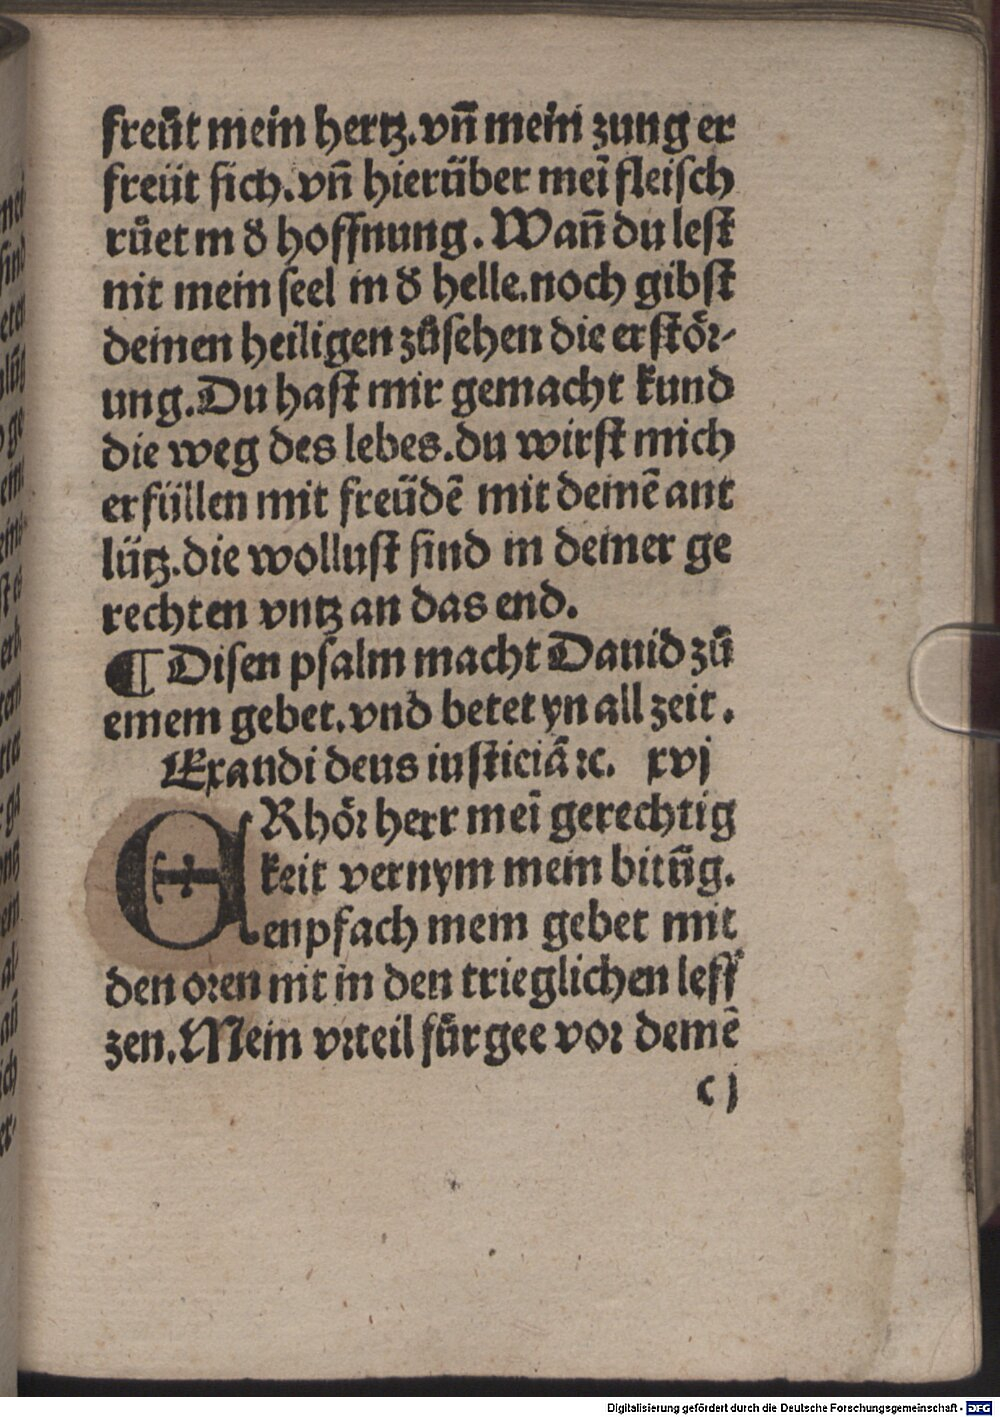 freüt mein hertz.vñ mein zung er
freüt sich.vñ hierüber meī fleisch
růet in d̕ hoffnung. Wañ du lest
nit mein seel in d̕ helle.noch gibst
deinen heiligen zůsehen die erstör-
ung. Du hast mir gemacht kund
die weg des lebes.du wirst mich
erfüllen mit freüdē mit deinē ant
lütz.die wollust sind in deiner ge
rechten vntz an das end.
¶ Disen psalm macht Dauid zů
einem gebet.vnd betet yn all zeit.
Exaudi deus iusticiā ⁊c. xvj
ERhör herr meī gerechtig
keit vernym mein bitūg.
enpfach mein gebet mit
den oren nit in den trieglichen leff
zen. Mein vrteil für gee vor deinē
c j
Digitalisierung gefördert durch die Deutsche Forschungsgemeinschaft - DFG